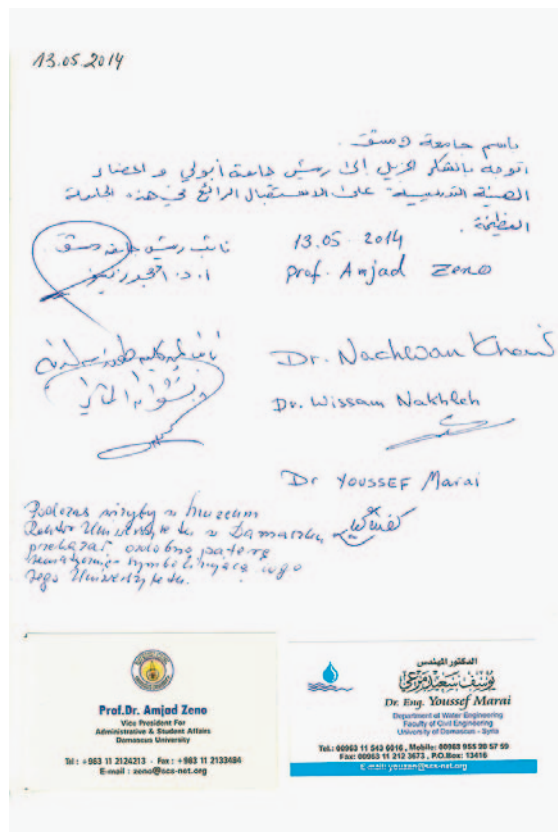 13.05.2014
باسم جامعة دمشق
اتوجه بالشكر الجزيل إلى رئيس جامعة أبولي و اعضاء
الهيئة التدريسية على الاستقبال الرائع في هذه الجامعة
العظيمة .
نائب رئيس جامعة دمشق
أ. د. امجد زينو
13.05.2014
prof. Amjad Zeno
Dr. Nachwan
Dr. Wissam Nakhleh
Dr YOUSSEF Marai
Podczas wizyty w muzeum
Rektor Uniwersytetu w Damaszku
przekazał ozdobną paterę
symbolizującą logo
tego Uniwersytetu.
Prof.Dr. Amjad Zeno
Vice President For
Administrative & Student Affairs
Damascus University
Tel : +963 11 2124213 - Fax : +963 11 2133484
E-mail : zeno@scs-net.org
الدكتور المهندس
يوسف سعيد مرعي
Dr. Eng. Youssef Marai
Department of Water Engineering
Faculty of Civil Engineering
University of Damascus - Syria
Tel.: 00963 11 543 6016 , Mobile: 00963 955 20 57 59
Fax: 00963 11 212 3673 , P.O.Box: 13416
E-mail: youzan@scs-net.org